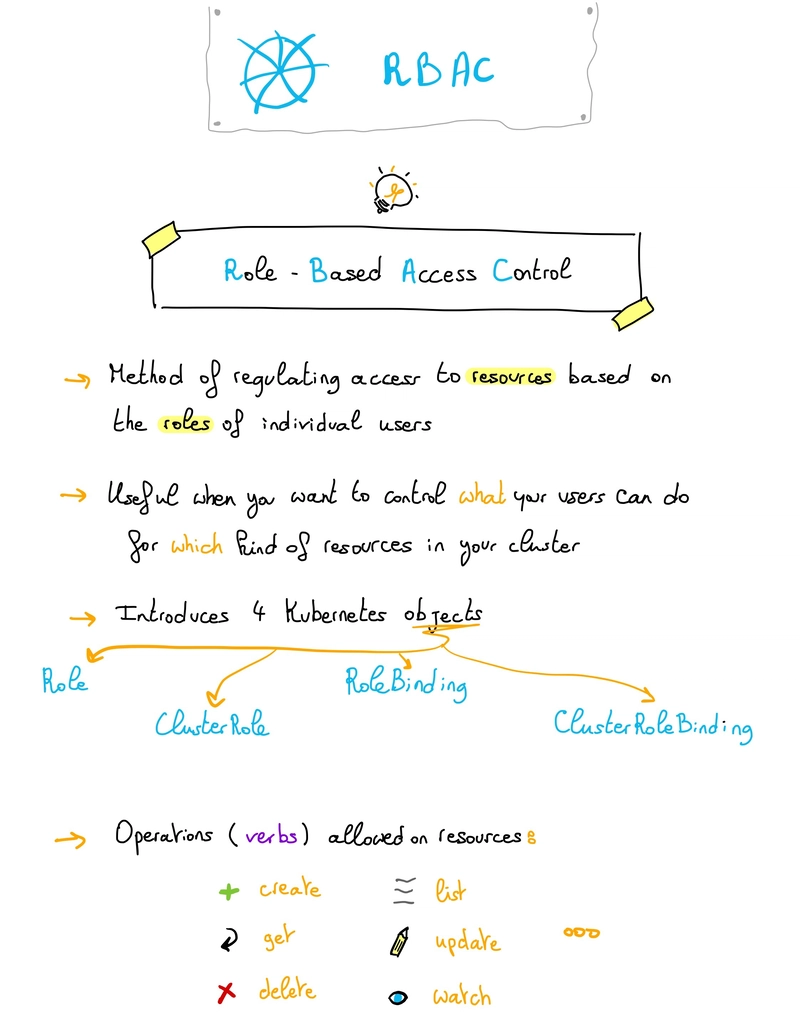 RBAC
Role - Based Access Control
→ Method of regulating access to resources based on
the roles of individual users
→ Useful when you want to control what your users can do
for which kind of resources in your cluster
→ Introduces 4 Kubernetes objects
Role
ClusterRole
RoleBinding
ClusterRoleBinding
→ Operations (verbs) allowed on resources:
+ create
list
get
update
ooo
x delete
watch